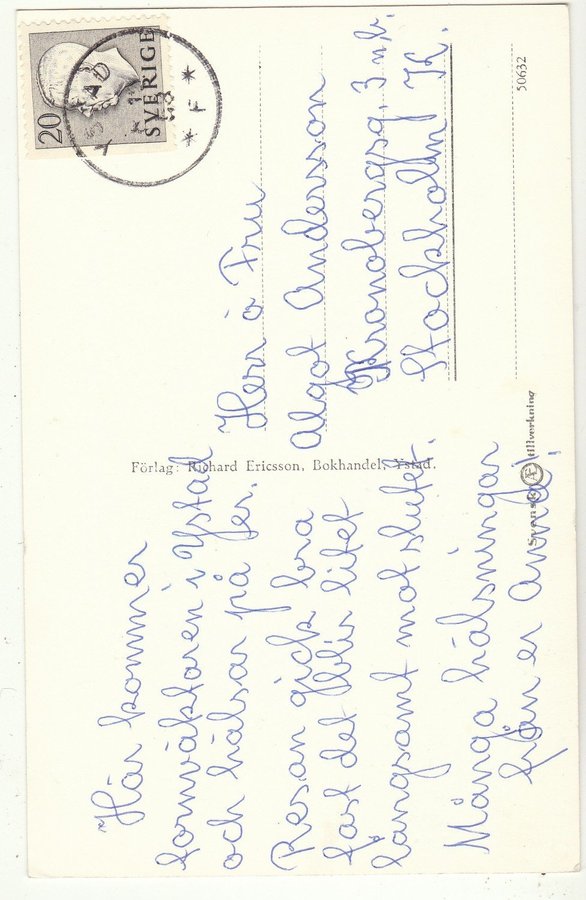 Här kommer
tornväktaren i Ystad
och hälsar på er.
Resan gick bra
fast det blir litet
långsamt mot slutet.
Många hälsningar
från er Anna!
Förlag: Richard Ericsson, Bokhandel, Ystad.
Svensk Æ tillverkning
20
SVERIGE
YSTAD
* F *
Herr o Fru
Algot Andersson
Kronobergsg. 3 n.b.
Stockholm K.
50632